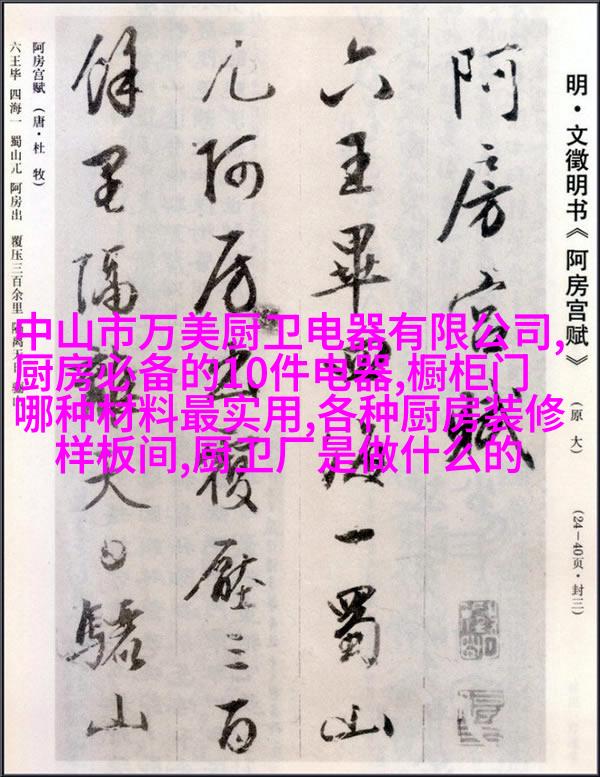 明·文徵明书《阿房宫赋》
(原大)
(24—40页·封三)
阿房宫赋
六王畢四海一蜀山
兀阿房出覆壓三百
餘里隔離天日驪山
阿房宫赋（唐·杜 牧）
六王毕 四海一 蜀山兀 阿房出 覆压三百余里 隔离天
中山市万美厨卫电器有限公司,
厨房必备的10件电器,橱柜门
哪种材料最实用,各种厨房装修
样板间,厨卫厂是做什么的